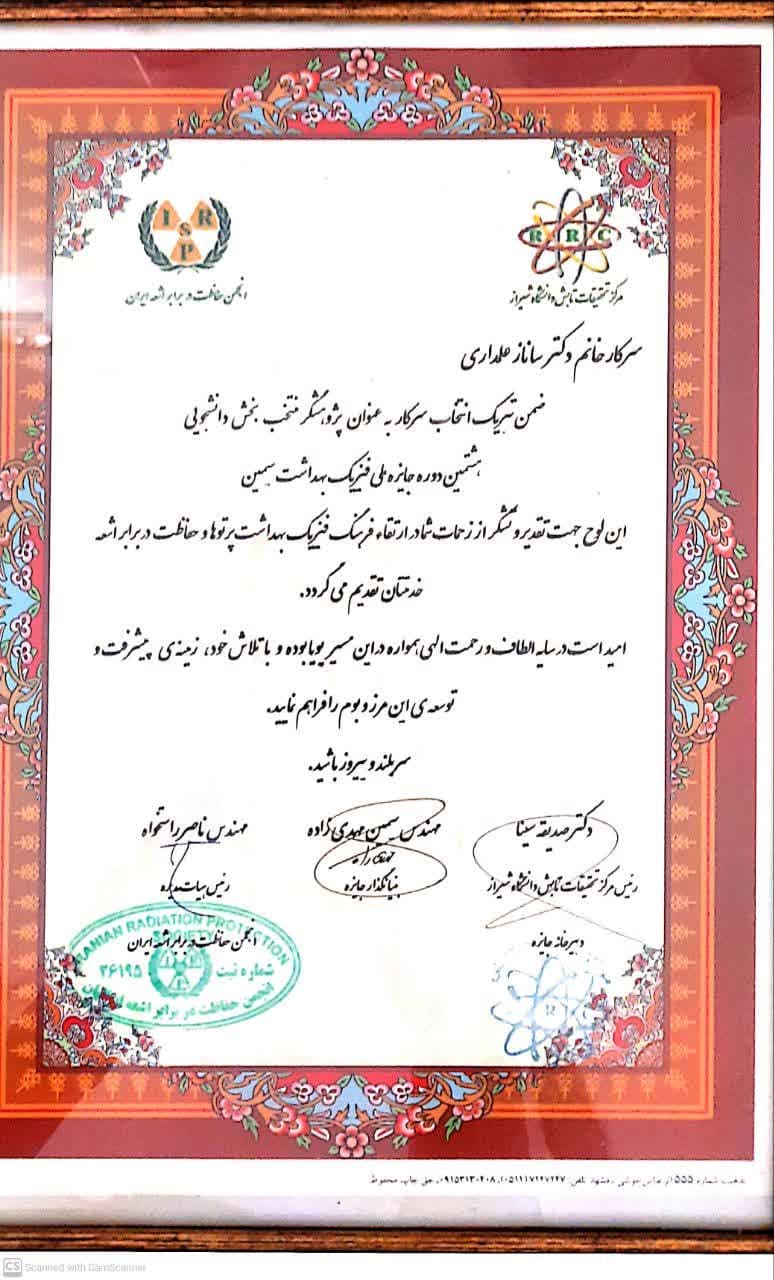 R R C
I R S P
مرکز تحقیقات تابش دانشگاه شیراز
انجمن حفاظت در برابر اشعه ایران
سرکار خانم دکتر ساناز علمداری
ضمن تبریک انتخاب سرکار به عنوان پژوهشگر منتخب بخش دانشجویی
هشتمین دوره جایزه ملی فیزیک بهداشت سیمین
این لوح جهت تقدیر و تشکر از زحمات شما در ارتقاء فرهنگ فیزیک بهداشت پرتوها و حفاظت در برابر اشعه
خدمتان تقدیم می گردد.
امید است در سایه الطاف و رحمت الهی همواره در این مسیر پویا بوده و با تلاش خود، زمینه ی پیشرفت و
توسعه ی این مرز و بوم را فراهم نمایید.
سربلند و پیروز باشید.
دکتر صدیقه سینا
مهندس سیمین مهدی زاده
مهندس ناصر راستخواه
رئیس مرکز تحقیقات تابش دانشگاه شیراز
بنیانگذار جایزه
رئیس هیات مدیره
دبیرخانه جایزه
انجمن حفاظت در برابر اشعه ایران
IRANIAN RADIATION PROTECTION
SOCIETY
شماره ثبت ۲۶۱۹۵
انجمن حفاظت در برابر اشعه ایران
۰۹۱۵۳۱۳۰۴۰۸، حق چاپ محفوظ
CS Scanned with CamScanner